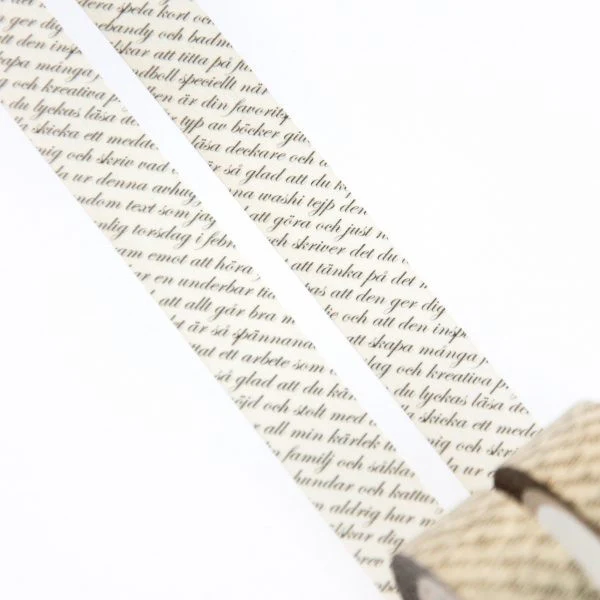 ger dig
att den insp
skapa många
och kreativa p
du lyckas läsa de
skicka ett medde
mig och skriv vad
la ur denna avhug
ndom text som jag
nlig torsdag i febr
ram emot att höra
ar en underbar tid
att allt går bra m
det är så spännand
tat ett arbete som
så glad att du kä
öjd och stolt med
all min kärlek
in familj och såkla
hundar och kattu
n aldrig hur m
lskar dig
tera spela kort oc
nebandy och badm
lskar att titta på fu
ndboll speciellt när
en är din favorit
typ av böcker git
läsa deckare och
är så glad att du k
nna washi tejp den
att göra och just n
och skriver det du
att tänka på det
pas att den ger dig
je och att den insp
att skapa många
ag och kreativa p
du lyckas läsa den
skicka ett medd
mig och sk
la ur d